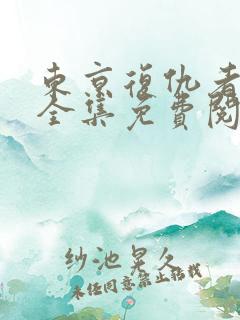 東京復仇者
全集免費閱
纱池晃久
未经同意禁止转载